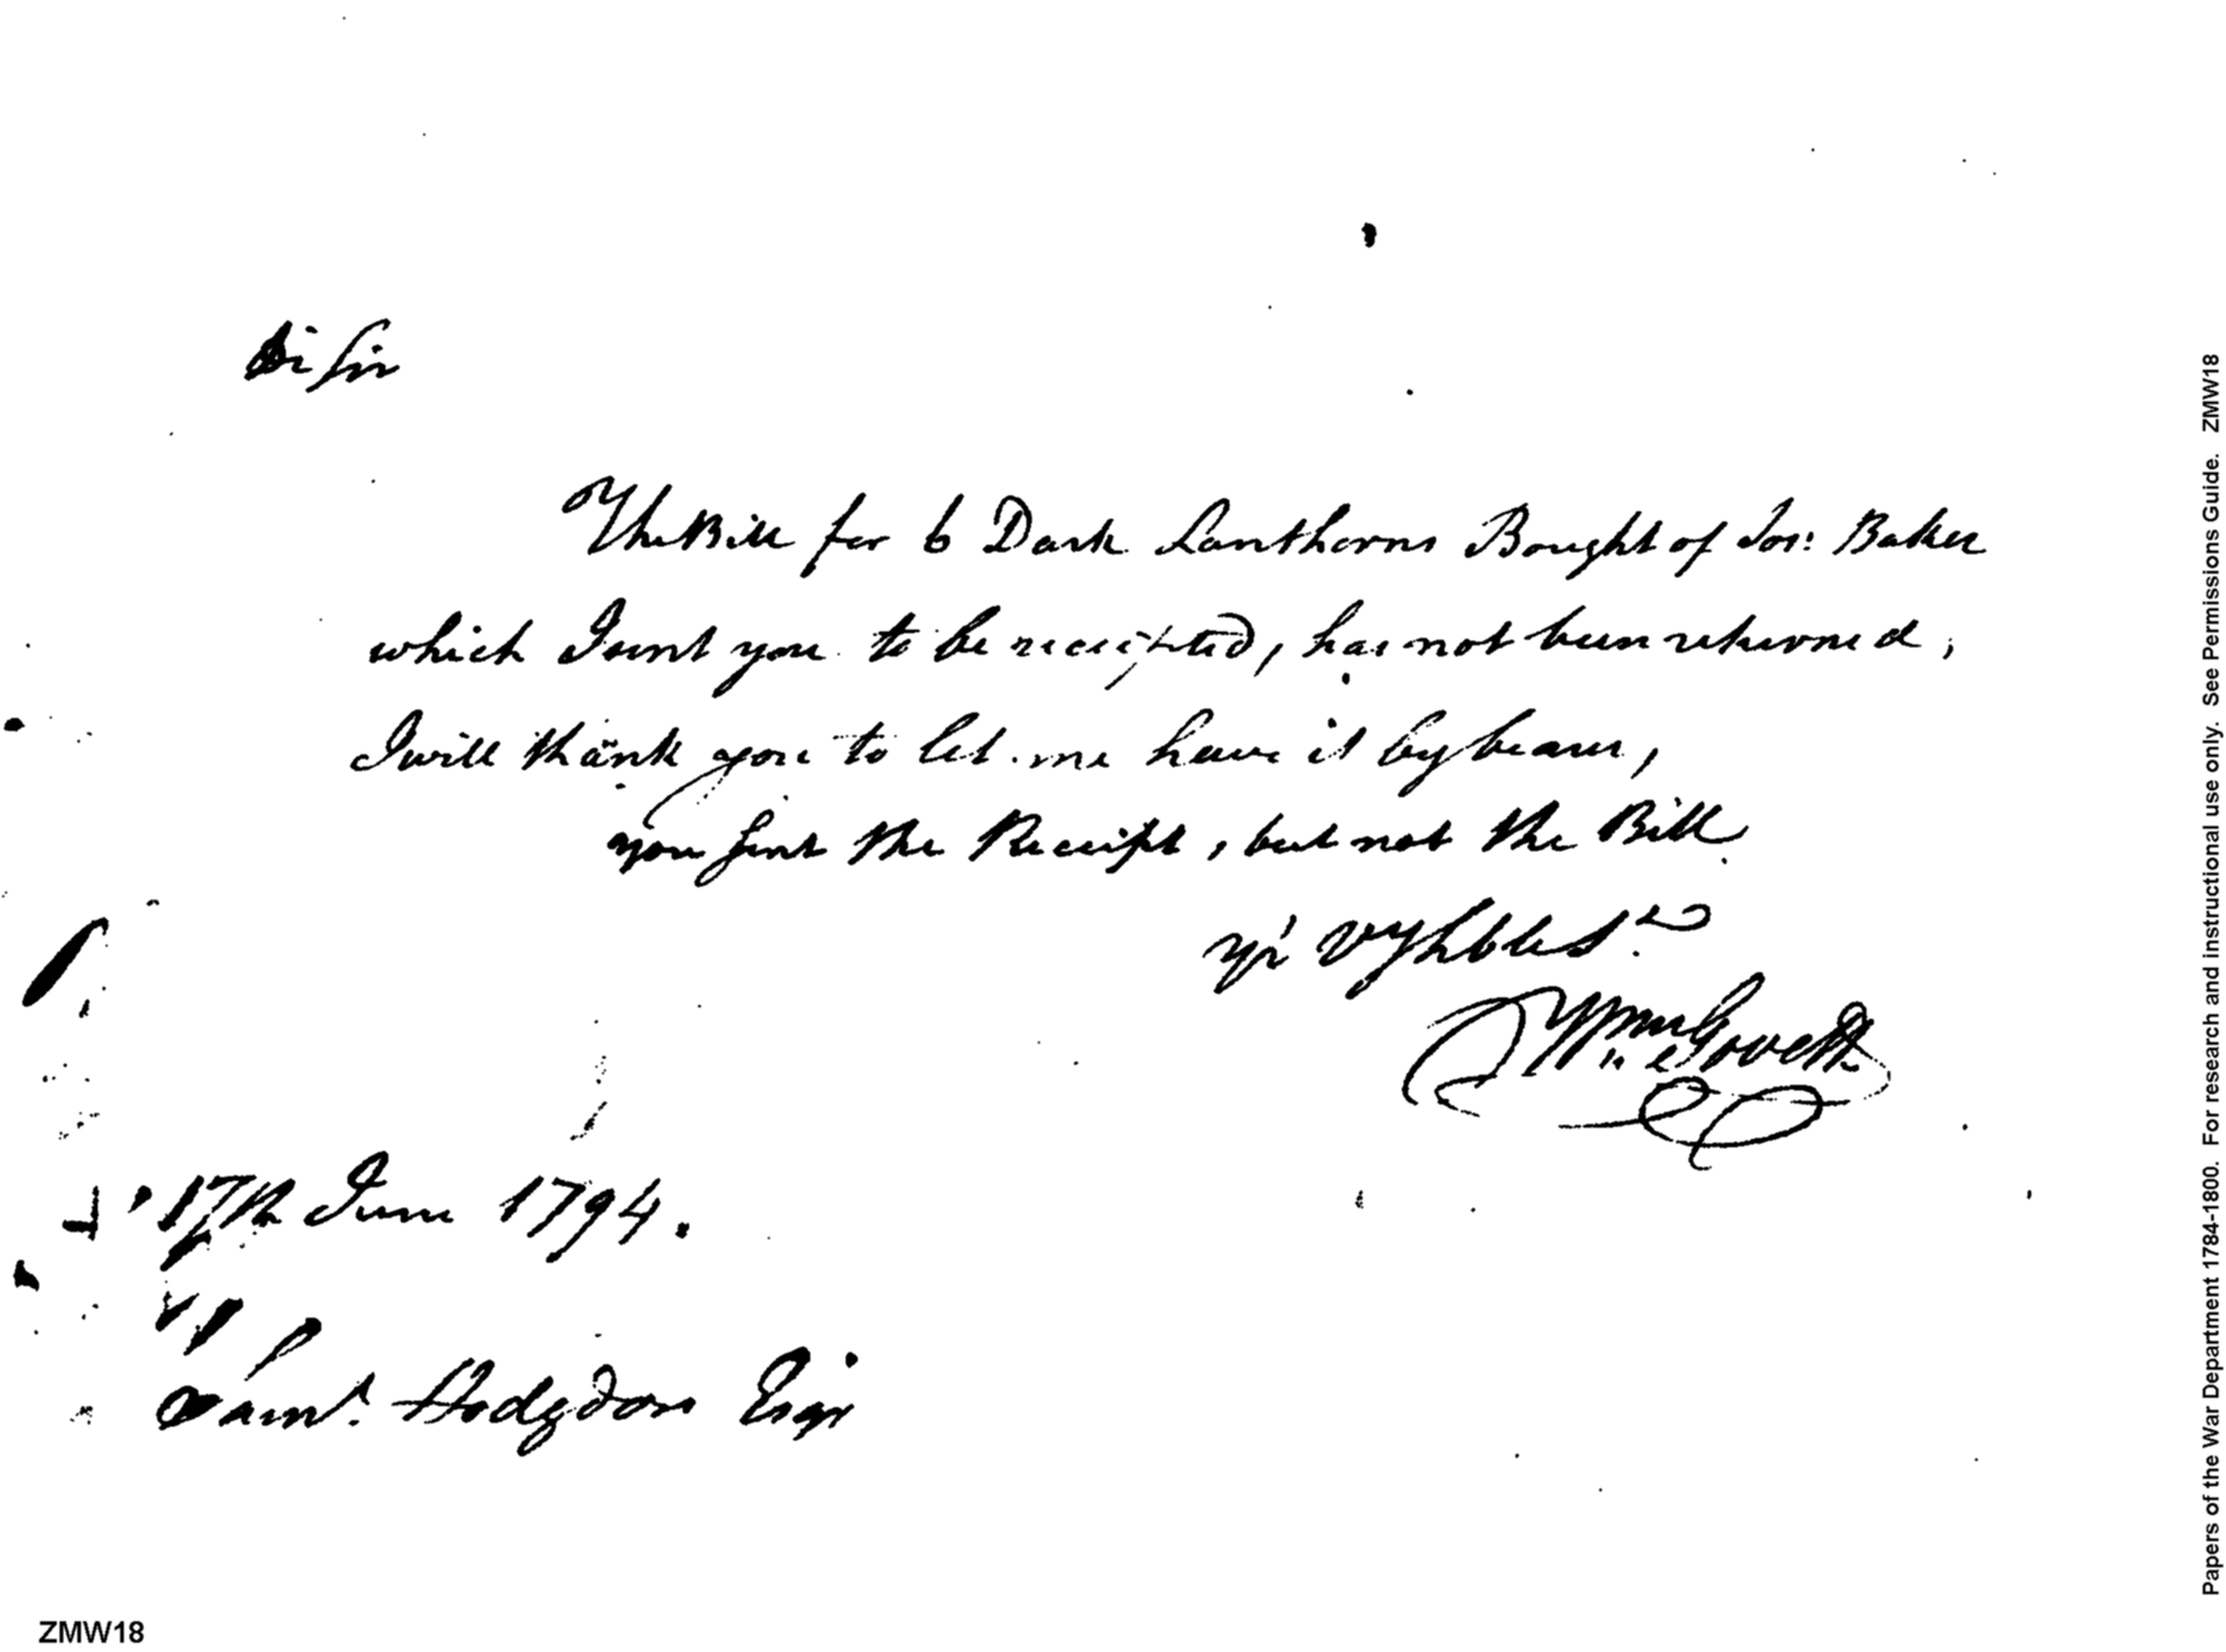 Dr Sir
The Bill for 6 Dark Lanthorns Bought of Jos: Baker
which I sent you to be receipted, has not been returned,
I will thank you to let me have it by bearer,
you sent the Receipt, but not the Bill.
Yr Hble St
Wm Govett
17th June 1794.
Saml. Hodgdon Esqr
ZMW18
Papers of the War Department 1784-1800. For research and instructional use only. See Permissions Guide. ZMW18